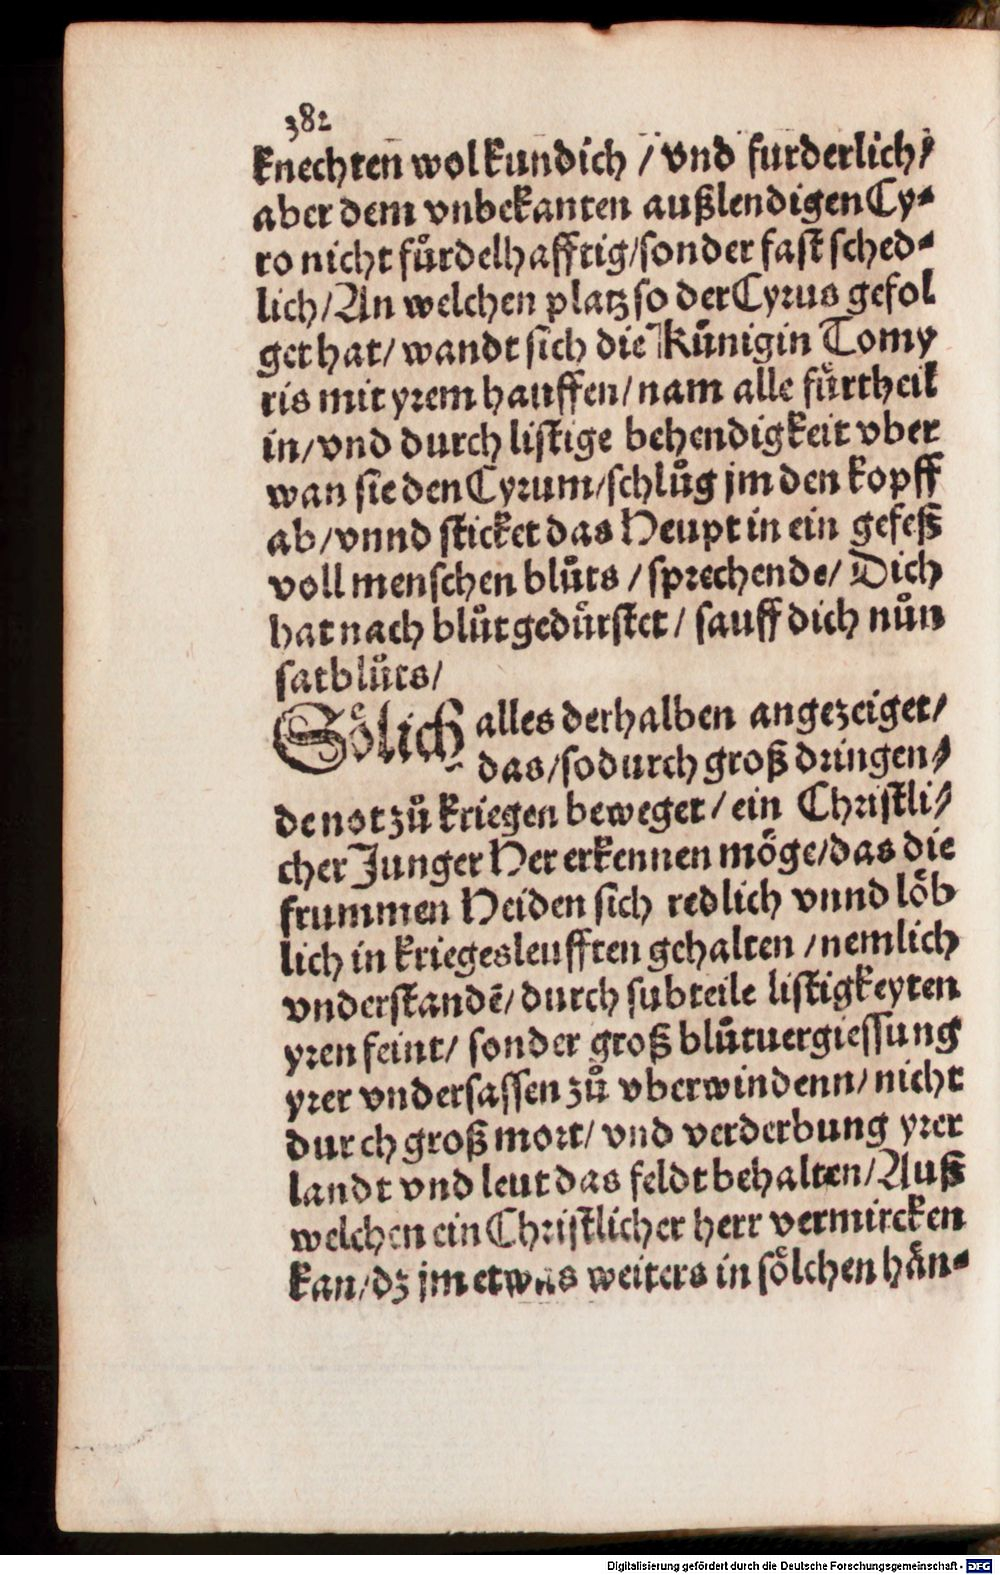 382
knechten wol kundich / vnd furderlich /
aber dem vnbekanten außlendigen Cy-
ro nicht fuͤrdelhafftig / sonder fast sched-
lich / An welchen platz so der Cyrus gefol
get hat / wandt sich die Kuͤnigin Tomy
ris mit yrem hauffen / nam alle fuͤrtheil
in / vnd durch listige behendigkeit vber
wan sie den Cyrum / schluͦg jm den kopff
ab / vnnd sticket das Heupt in ein gefeß
voll menschen bluͦts / sprechende / Dich
hat nach bluͦt geduͤrstet / sauff dich nuͦn
sat bluͦts /
Soͤlich alles derhalben angezeiget /
das / so durch groß dringen /
de not zuͦ kriegen beweget / ein Christli /
cher Junger Her erkennen moͤge / das die
frummen Heiden sich redlich vnnd loͤb
lich in kriegesleufften gehalten / nemlich
vnderstandē / durch subteile listigkeyten
yren feint / sonder groß bluͦtuergiessung
yrer vndersassen zuͦ vberwindenn / nicht
durch groß mort / vnd verderbung yrer
landt vnd leut das feldt behalten / Auß
welchen ein Christlicher herr vermircken
kan / dz jm etwas weiters in soͤlchen haͤn-
Digitalisierung gefördert durch die Deutsche Forschungsgemeinschaft - DFG